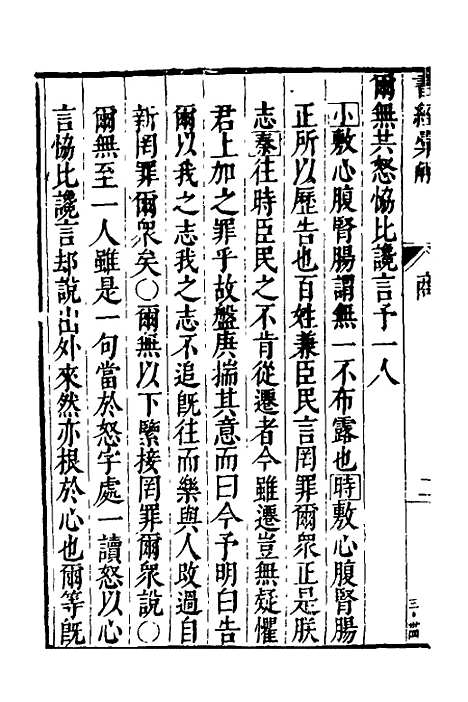 書經
商
二
爾無共怒恊比讒言予一人
小敷心腹腎腸謂無一不布露也時敷心腹腎腸
正所以歷告也百姓兼臣民言罔罪爾衆正是朕
志秦往時臣民之不肯從遷者今雖遷豈無疑懼
君上加之罪乎故盤庚揣其意而曰今予明白告
爾以我之志我之志不追旣往而樂與人攺過自
新罔罪爾衆矣〇爾無以下緊接罔罪爾衆說〇
爾無至一人雖是一句當於怒字處一讀怒以心
言恊比讒言却說出外來然亦根於心也爾等旣